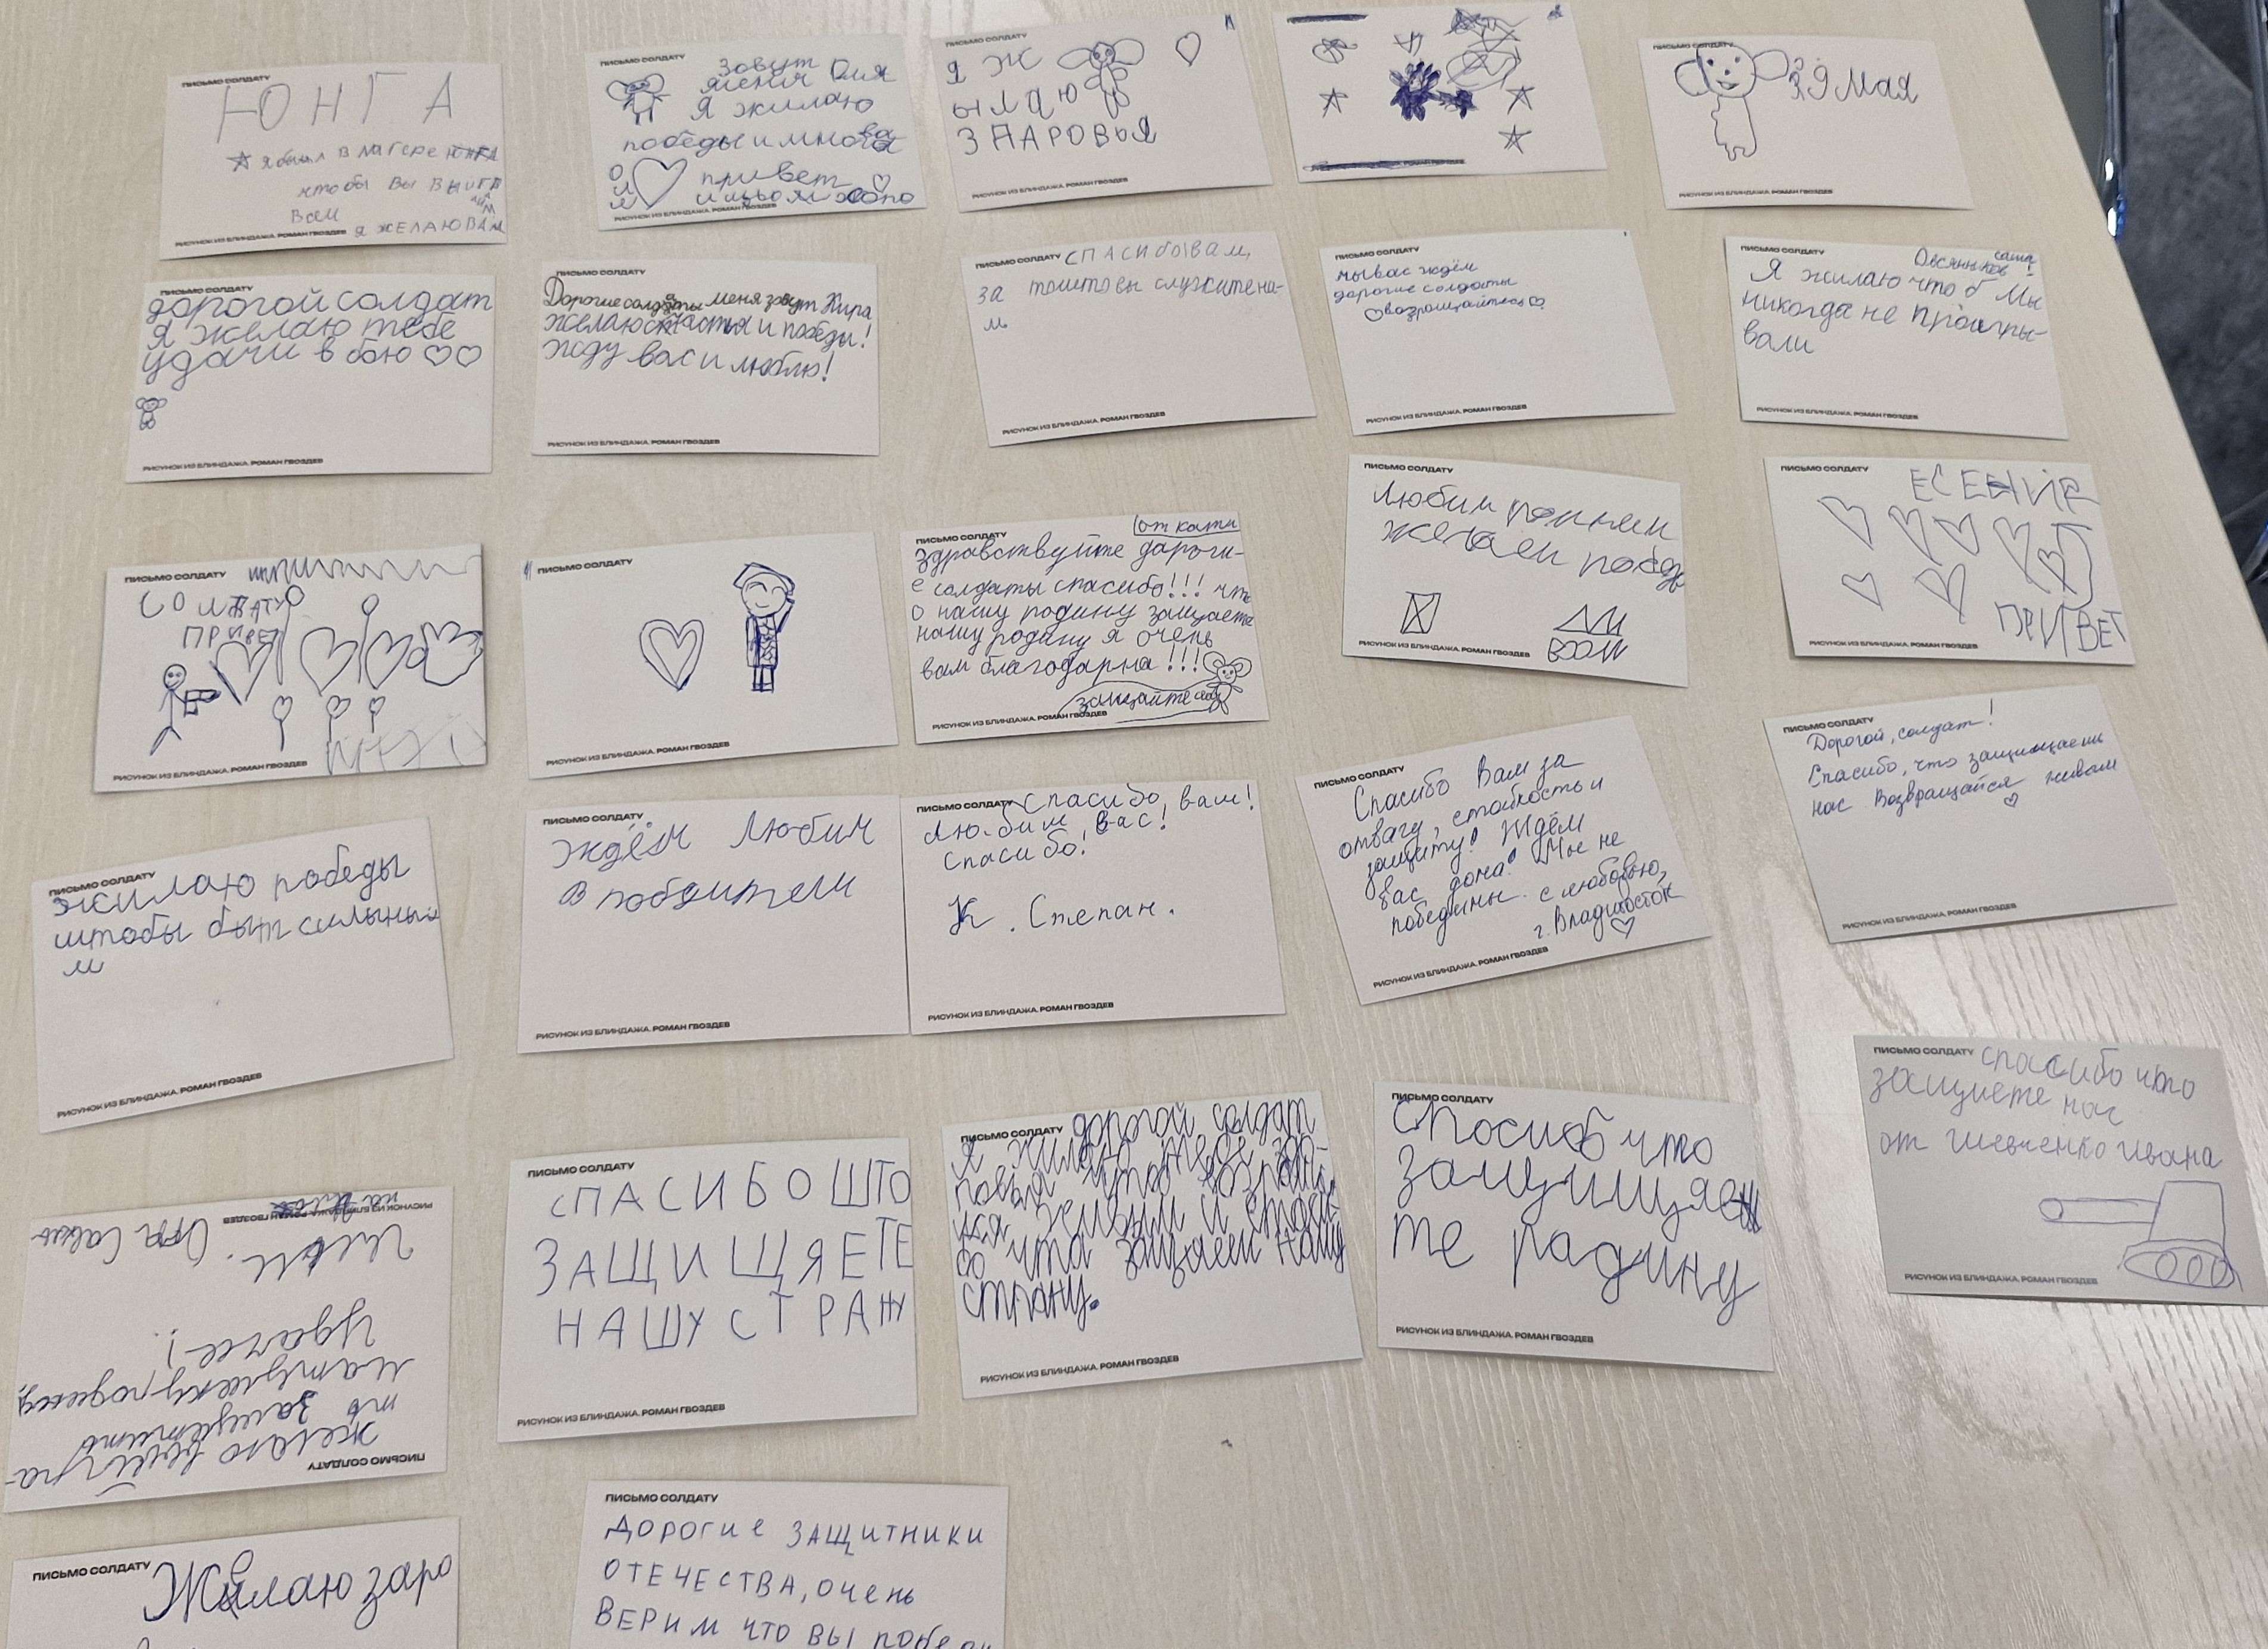 ПИСЬМО СОЛДАТУ
ЮНГА
я был в лагере ЮНГА
чтобы вы
Вам
я ЖЕЛАЮ ВАМ
РИСУНОК ИЗ БЛИНДАЖА. РОМАН ГВОЗДЕВ
ПИСЬМО СОЛДАТУ
зовут
меня Оля
я жилаю
победы и многа
Оля
привет
РИСУНОК ИЗ БЛИНДАЖА. РОМАН ГВОЗДЕВ
ПИСЬМО СОЛДАТУ
Я Ж
ЫЛАЮ
ЗПАРОВЬЯ
РИСУНОК ИЗ БЛИНДАЖА. РОМАН ГВОЗДЕВ
ПИСЬМО СОЛДАТУ
З 9 Мая
РИСУНОК ИЗ БЛИНДАЖА. РОМАН ГВОЗДЕВ
ПИСЬМО СОЛДАТУ
дорогой солдат
я желаю тебе
удачи в бою
РИСУНОК ИЗ БЛИНДАЖА. РОМАН ГВОЗДЕВ
ПИСЬМО СОЛДАТУ
Дорогие солдаты меня зовут Кира
желаю счастья и победы!
Жду вас и люблю!
РИСУНОК ИЗ БЛИНДАЖА. РОМАН ГВОЗДЕВ
ПИСЬМО СОЛДАТУ
СПАСИбО ВАМ,
за тоштовы служитена-
м
РИСУНОК ИЗ БЛИНДАЖА. РОМАН ГВОЗДЕВ
ПИСЬМО СОЛДАТУ
мы вас ждём
дорогие солдаты
возращайтесь
РИСУНОК ИЗ БЛИНДАЖА. РОМАН ГВОЗДЕВ
ПИСЬМО СОЛДАТУ
Овсянников саша!
Я жилаю что б мы
никогда не проигры-
вали
РИСУНОК ИЗ БЛИНДАЖА. РОМАН ГВОЗДЕВ
ПИСЬМО СОЛДАТУ
СОЛЖАТУ
ПРИВЕТ
РИСУНОК ИЗ БЛИНДАЖА. РОМАН ГВОЗДЕВ
ПИСЬМО СОЛДАТУ
РИСУНОК ИЗ БЛИНДАЖА. РОМАН ГВОЗДЕВ
ПИСЬМО СОЛДАТУ
от кати
здравствуйте дароги-
е солдаты спасибо!!! чт
о нашу родину защаете
нашу родину я очень
вам благодарна!!!
защайте
РИСУНОК ИЗ БЛИНДАЖА. РОМАН ГВОЗДЕВ
ПИСЬМО СОЛДАТУ
Любим помним
желаем победы
РИСУНОК ИЗ БЛИНДАЖА. РОМАН ГВОЗДЕВ
ПИСЬМО СОЛДАТУ
ЕСЕНИЯ
ПРИВЕТ
РИСУНОК ИЗ БЛИНДАЖА. РОМАН ГВОЗДЕВ
ПИСЬМО СОЛДАТУ
жилаю победы
штобы быт силыны
м
РИСУНОК ИЗ БЛИНДАЖА. РОМАН ГВОЗДЕВ
ПИСЬМО СОЛДАТУ
Ждём Любим
РИСУНОК ИЗ БЛИНДАЖА. РОМАН ГВОЗДЕВ
ПИСЬМО СОЛДАТУ
Спасибо, вам!
Любим вас!
Спасибо!
К. Степан.
РИСУНОК ИЗ БЛИНДАЖА. РОМАН ГВОЗДЕВ
ПИСЬМО СОЛДАТУ
Спасибо Вам за
отвагу, стойкость и
защиту! Ждём
вас дома! Мы не
победимы. с любовью,
г. Владивосток
РИСУНОК ИЗ БЛИНДАЖА. РОМАН ГВОЗДЕВ
ПИСЬМО СОЛДАТУ
Дорогой, солдат!
Спасибо, что защищаешь
нас Возвращайся живым
РИСУНОК ИЗ БЛИНДАЖА. РОМАН ГВОЗДЕВ
ПИСЬМО СОЛДАТУ
желаю выйгра-
ть
защитить
матушку родину,
удачи!
РИСУНОК ИЗ БЛИНДАЖА. РОМАН ГВОЗДЕВ
ПИСЬМО СОЛДАТУ
СПАСИБО ШТО
ЗАЩИЩЯЕТЕ
НАШУ СТРАНУ
РИСУНОК ИЗ БЛИНДАЖА. РОМАН ГВОЗДЕВ
ПИСЬМО СОЛДАТУ
дорогой солдат
я жилаю тебе здо-
живым и спаси-
бо что защаеш нашу
страну.
РИСУНОК ИЗ БЛИНДАЖА. РОМАН ГВОЗДЕВ
ПИСЬМО СОЛДАТУ
Спосиоб что
защищяе
те радину
РИСУНОК ИЗ БЛИНДАЖА. РОМАН ГВОЗДЕВ
ПИСЬМО СОЛДАТУ
спасибо что
защиете нас
от шевченко ивана
РИСУНОК ИЗ БЛИНДАЖА. РОМАН ГВОЗДЕВ
ПИСЬМО СОЛДАТУ
Желаю заро
ПИСЬМО СОЛДАТУ
ДОРОГИЕ ЗАЩИТНИКИ
ОТЕЧЕСТВА, ОЧЕНЬ
ВЕРИМ ЧТО ВЫ ПОБЕДИ